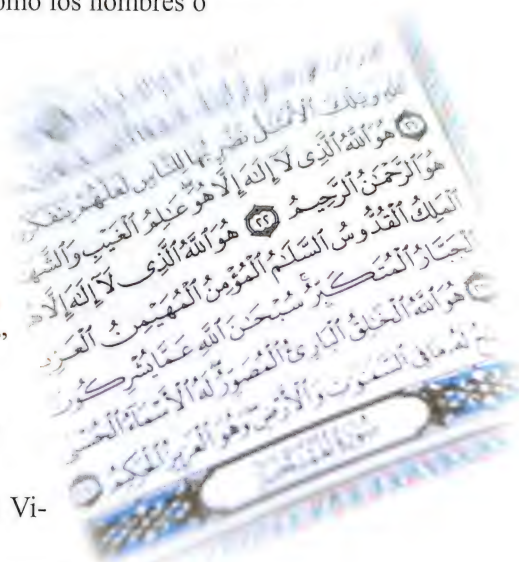 omo los hombres o
وَتِلْكَ الْأَمْثَٰلُ نَضْرِبُهَا لِلنَّاسِ لَعَلَّهُمْ يَتَفَكَّر
٢١ هُوَ اللَّهُ الَّذِى لَا إِلَٰهَ إِلَّا هُوَ عَٰلِمُ الْغَيْبِ وَالشَّه
هُوَ الرَّحْمَٰنُ الرَّحِيمُ ٢٢ هُوَ اللَّهُ الَّذِى لَا إِلَٰهَ إِلَّا
الْمَلِكُ الْقُدُّوسُ السَّلَٰمُ الْمُؤْمِنُ الْمُهَيْمِنُ الْعَزِ
الْجَبَّارُ الْمُتَكَبِّرُ سُبْحَٰنَ اللَّهِ عَمَّا يُشْرِكُونَ
هُوَ اللَّهُ الْخَٰلِقُ الْبَارِئُ الْمُصَوِّرُ لَهُ الْأَسْمَآءُ الْحُسْنَ
لَهُ مَا فِى السَّمَٰوَٰتِ وَالْأَرْضِ وَهُوَ الْعَزِيزُ الْحَكِيمُ
سُورَةُ الْمُمْتَحَنَةِ
Vi-